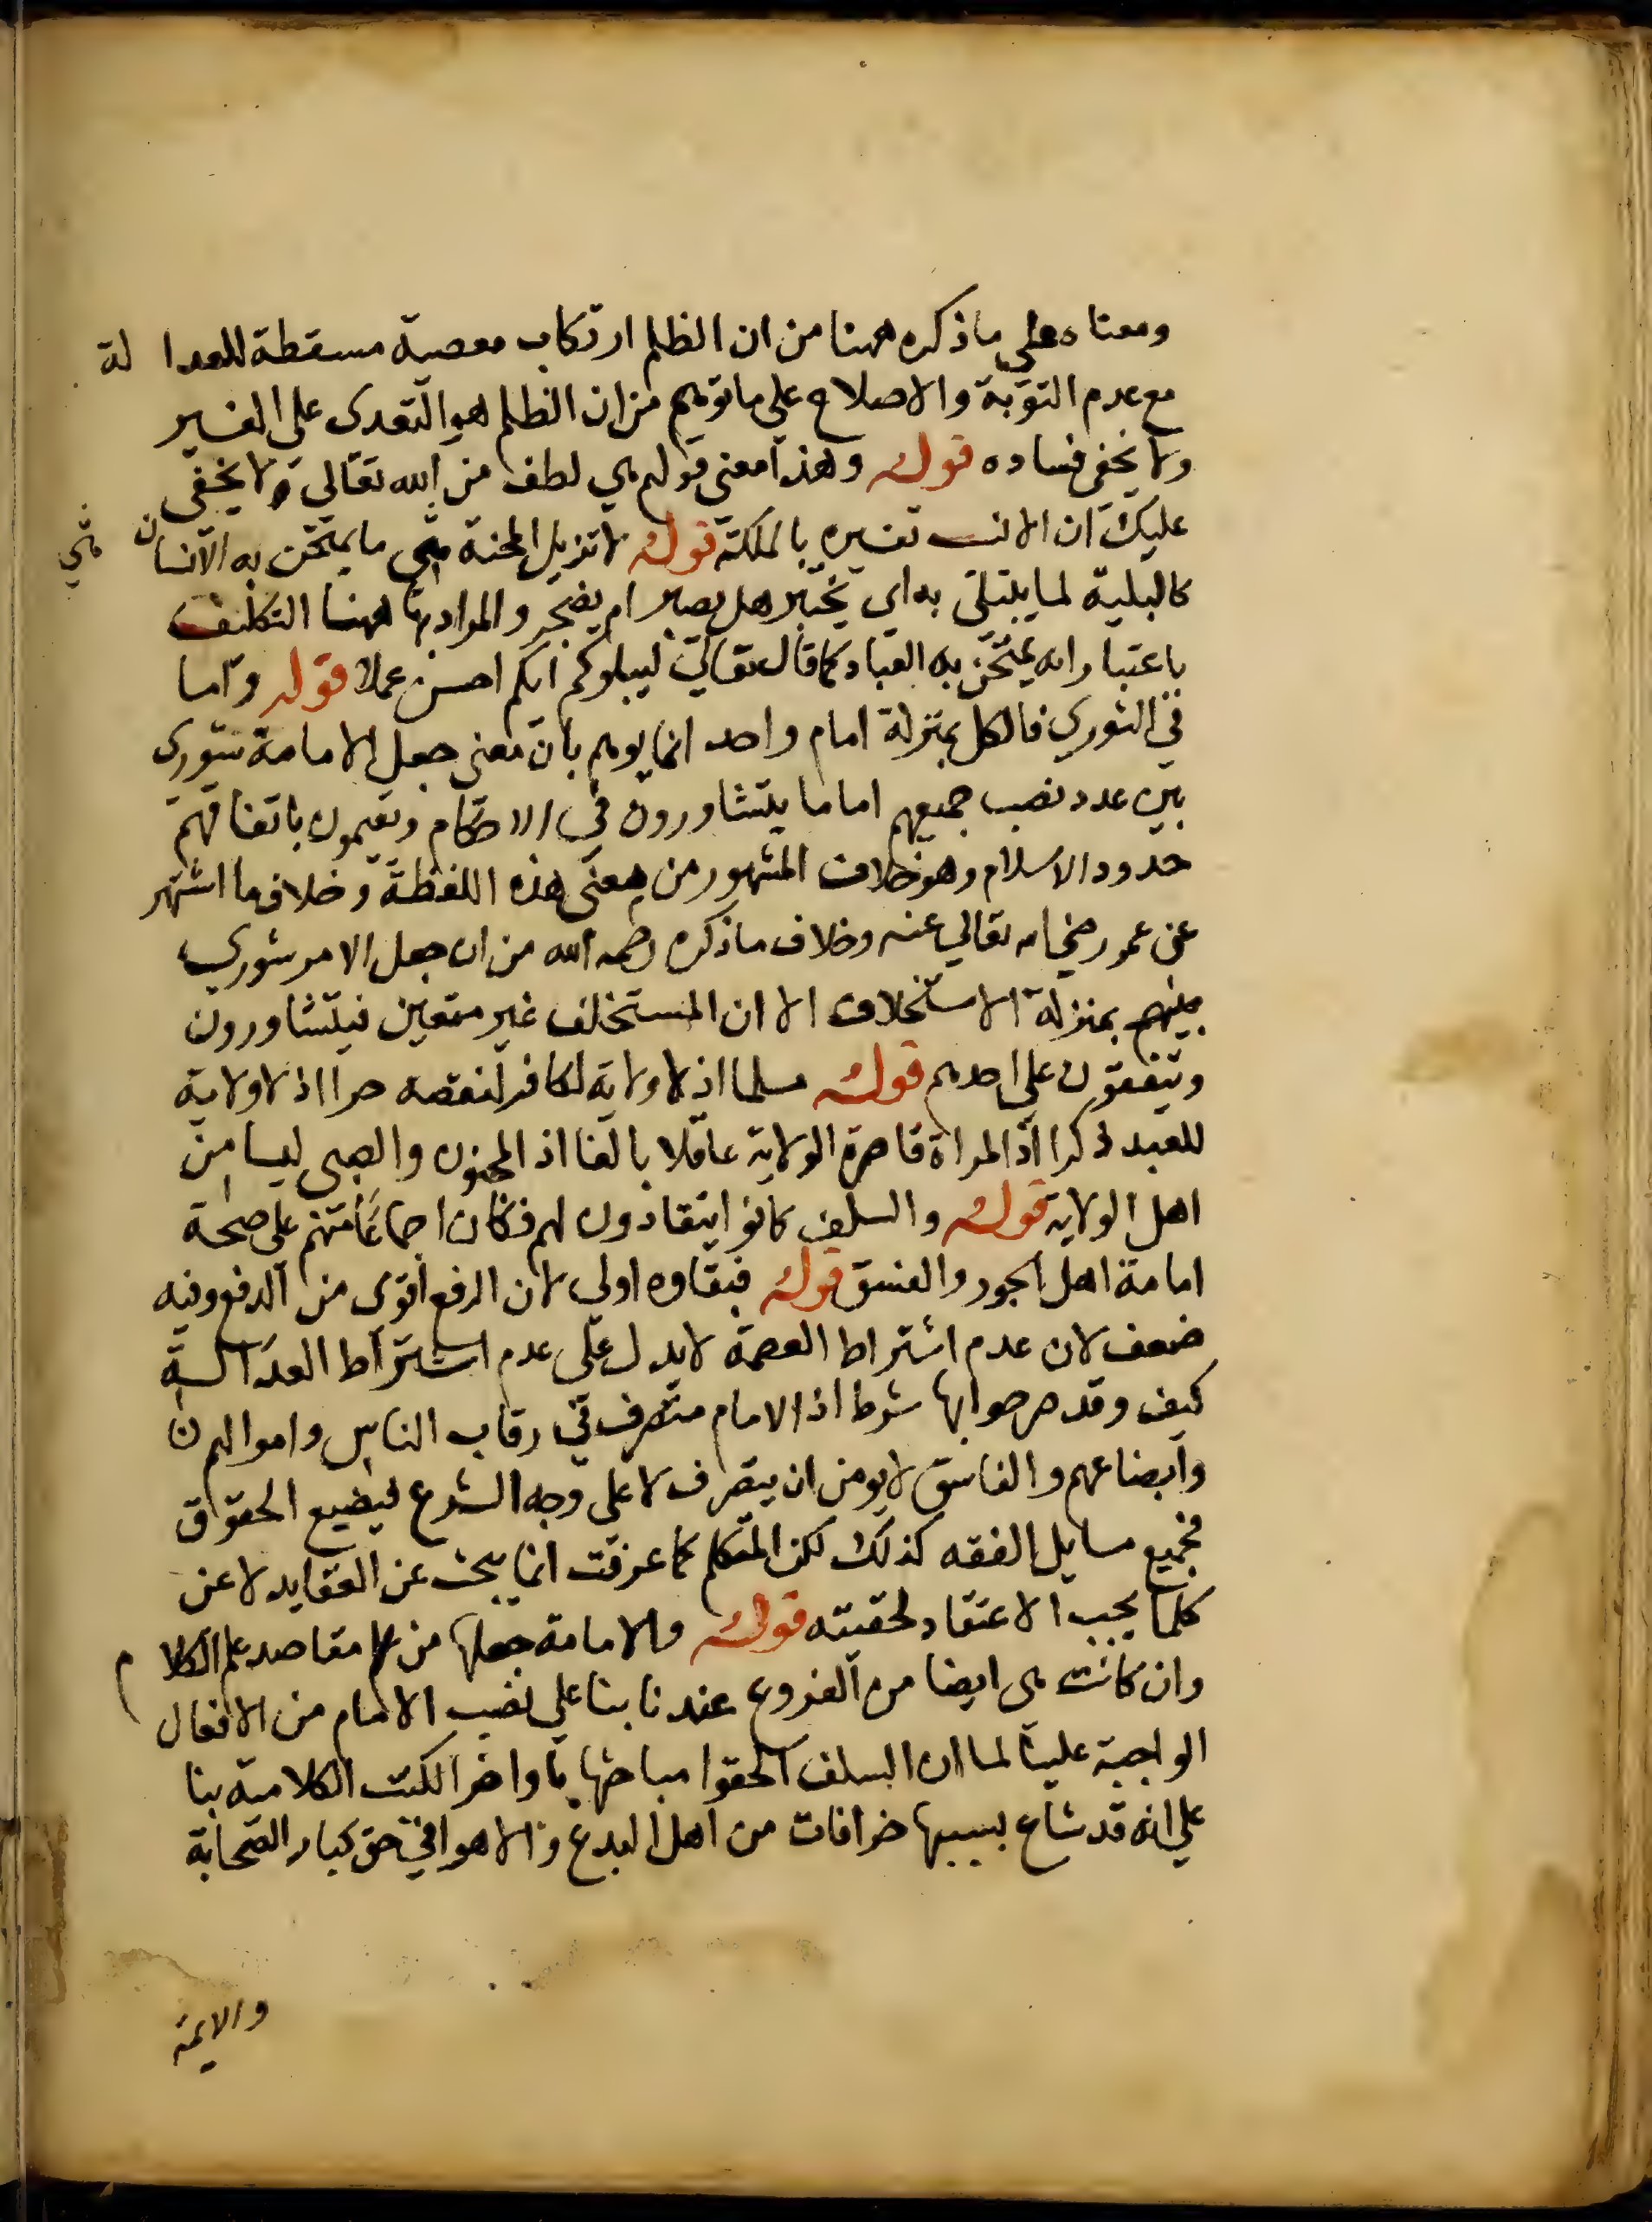 ومعناه على ماذكره ههنا من ان الظلم ارتكاب معصية مسقطة للعدالة
مع عدم التوبة والاصلاح على ماتوهم من ان الظلم هو التعدى على الغير
ولا يخفى فساده قوله وهذا معنى قولهم هي لطف من الله تعالى ولا يخفى
عليك ان الانسب تفسيره بالملكة قوله لا تزيل المحنة هي ما يمتحن به الانسان
هي
كالبلية لما يبتلى به اي يختبر هل يصبر ام يضجر والمراد بها ههنا التكليف
باعتبار انه يمتحن به العباد كما قال تعالى ليبلوكم ايكم احسن عملا قوله واما
في الشورى فالكل بمنزلة امام واحد انما يوهم بان معنى جعل الامامة شورى
بين عدد نصب جميعهم اماما يتشاورون في الاحكام ويقيمون باتفاقهم
حدود الاسلام وهو خلاف المشهور من معنى هذه اللفظة وخلاف ما اشتهر
عن عمر رضي الله تعالى عنه وخلاف ماذكره رحمه الله من ان جعل الامر شورى
بينهم بمنزلة الاستخلاف الا ان المستخلف غير متعين فيتشاورون
ويتفقون على احدهم قوله مسلما اذ لا ولاية لكافر لنقصه حرا اذ لا ولاية
للعبد ذكرا اذ المراة قاصرة الولاية عاقلا بالغا اذ المجنون والصبى ليسا من
اهل الولاية قوله والسلف كانوا ينقادون لهم فكان اجماعا منهم على صحة
امامة اهل الجور والفسق قوله فبقاوه اولى لان الرفع اقوى من الدفع وفيه
ضعف لان عدم اشتراط العصمة لا يدل على عدم اشتراط العدالة
كيف وقد صرحوا بها شرط اذ الامام متصرف في رقاب الناس واموالهم
وابضاعهم والفاسق لا يومن ان يتصرف لا على وجه الشرع فيضيع الحقوق
فجميع مسايل الفقه كذلك لكن المتكلم كما عرفت انما يبحث عن العقايد لا عن
كلما يجب الاعتقاد لحقيته قوله والامامة جعلها من مقاصد علم الكلام
وان كانت هى ايضا من الفروع عندنا بنا على نصب الامام من الافعال
الواجبة علينا لما ان السلف الحقوا مباحثها باواخر الكتب الكلامية بنا
على انه قد شاع بسببها خرافات من اهل البدع والاهوا في حق كبار الصحابة
والايمة